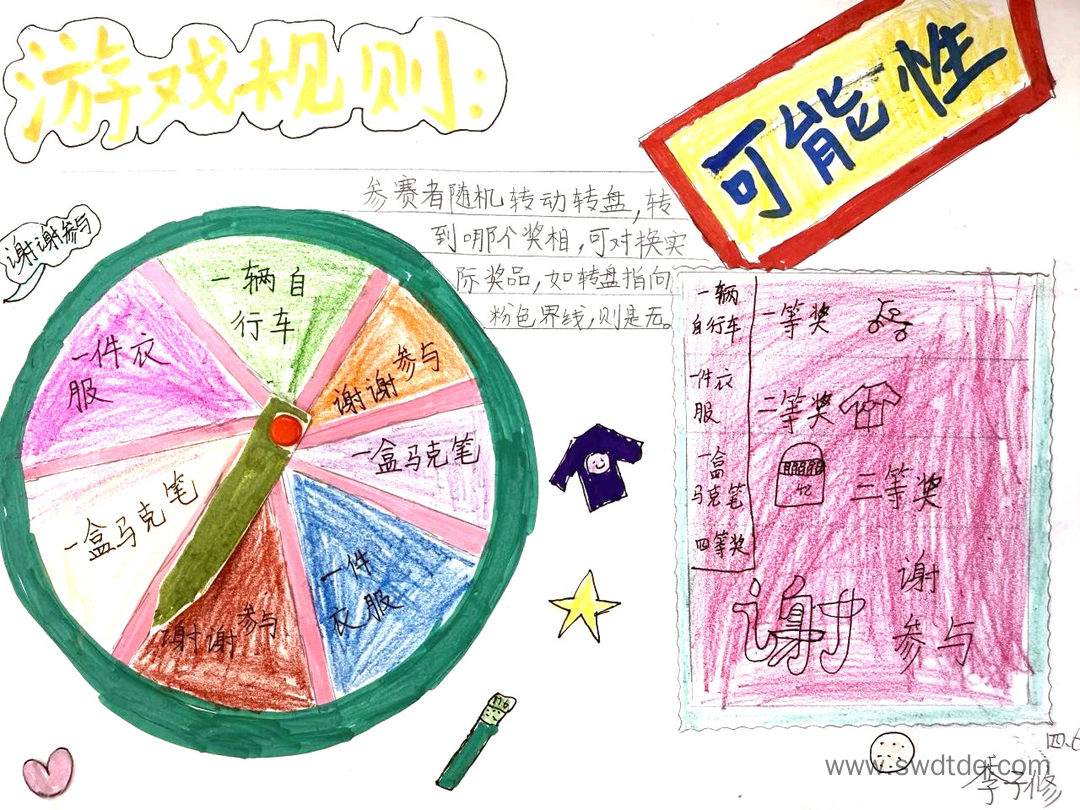 游戏规则:
可能性
参赛者随机转动转盘,转
到哪个奖相,可对换实
际奖品,如转盘指向
粉色界线,则是无。
谢谢参与
一辆自
行车
谢谢参与
一盒马克笔
一件
衣服
谢谢参与
一盒马克笔
一件衣
服
一辆
自行车
一等奖
一件衣
服
二等奖
一盒
马克笔
三等奖
四等奖
谢谢
参与
四.6
李子修
www.swdtdet.com